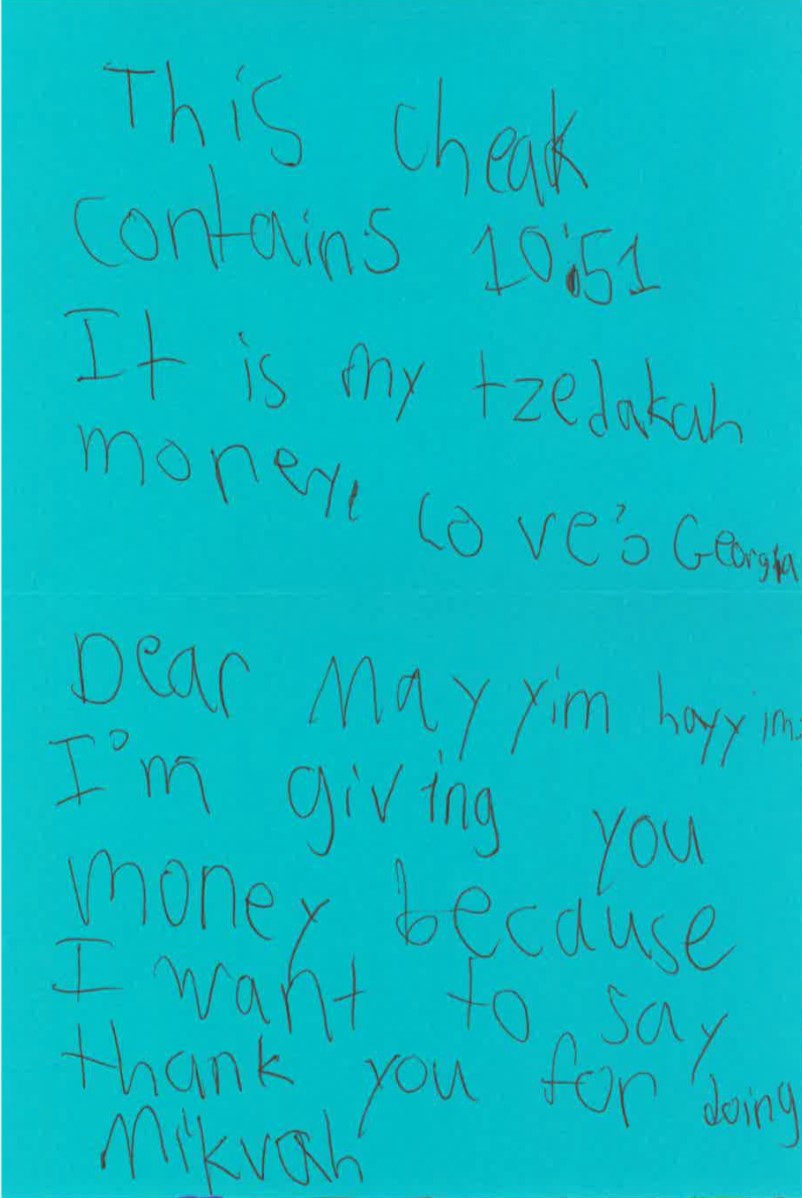 This cheak
contains 10:51
It is my tzedakah
money. Love's Georgia
Dear Mayyim hayyim
I'm giving you
money because
I want to say
thank you for doing
Mikvah